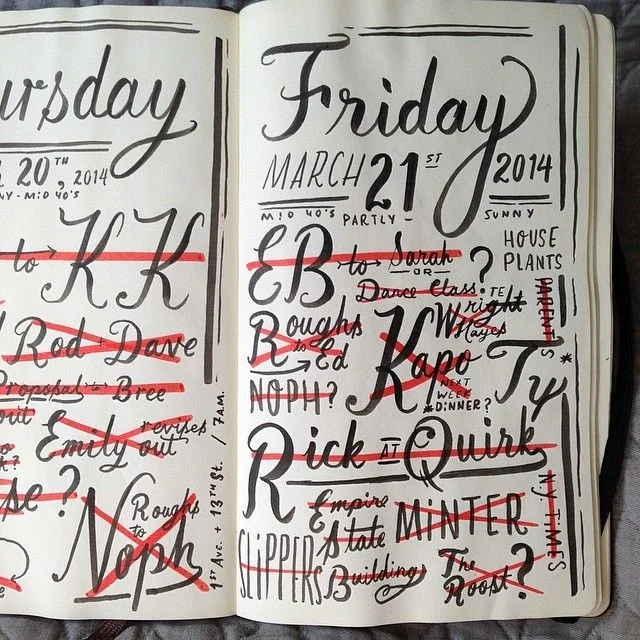 ursday
20TH, 2014
NY - MID 40'S
to → KK
Rod + Dave
Proposal to Bree
out
Emily revises out
se?
Roughs
to
Noph
1ST AVE. + 13TH ST. / 7 A.M. -
Friday
MARCH 21ST 2014
MID 40'S PARTLY - SUNNY
EB to → Sarah
OR
Dance Class?
HOUSE
PLANTS
PARENTS
Roughs
to Ed
NOPH?
Kapo
Wright
Hayes
NEXT
WEEK
*DINNER?
Ty*
Rick AT Quirk
SLIPPERS
Empire
State
Building
MINTER
The
Roost?
NY TIMES